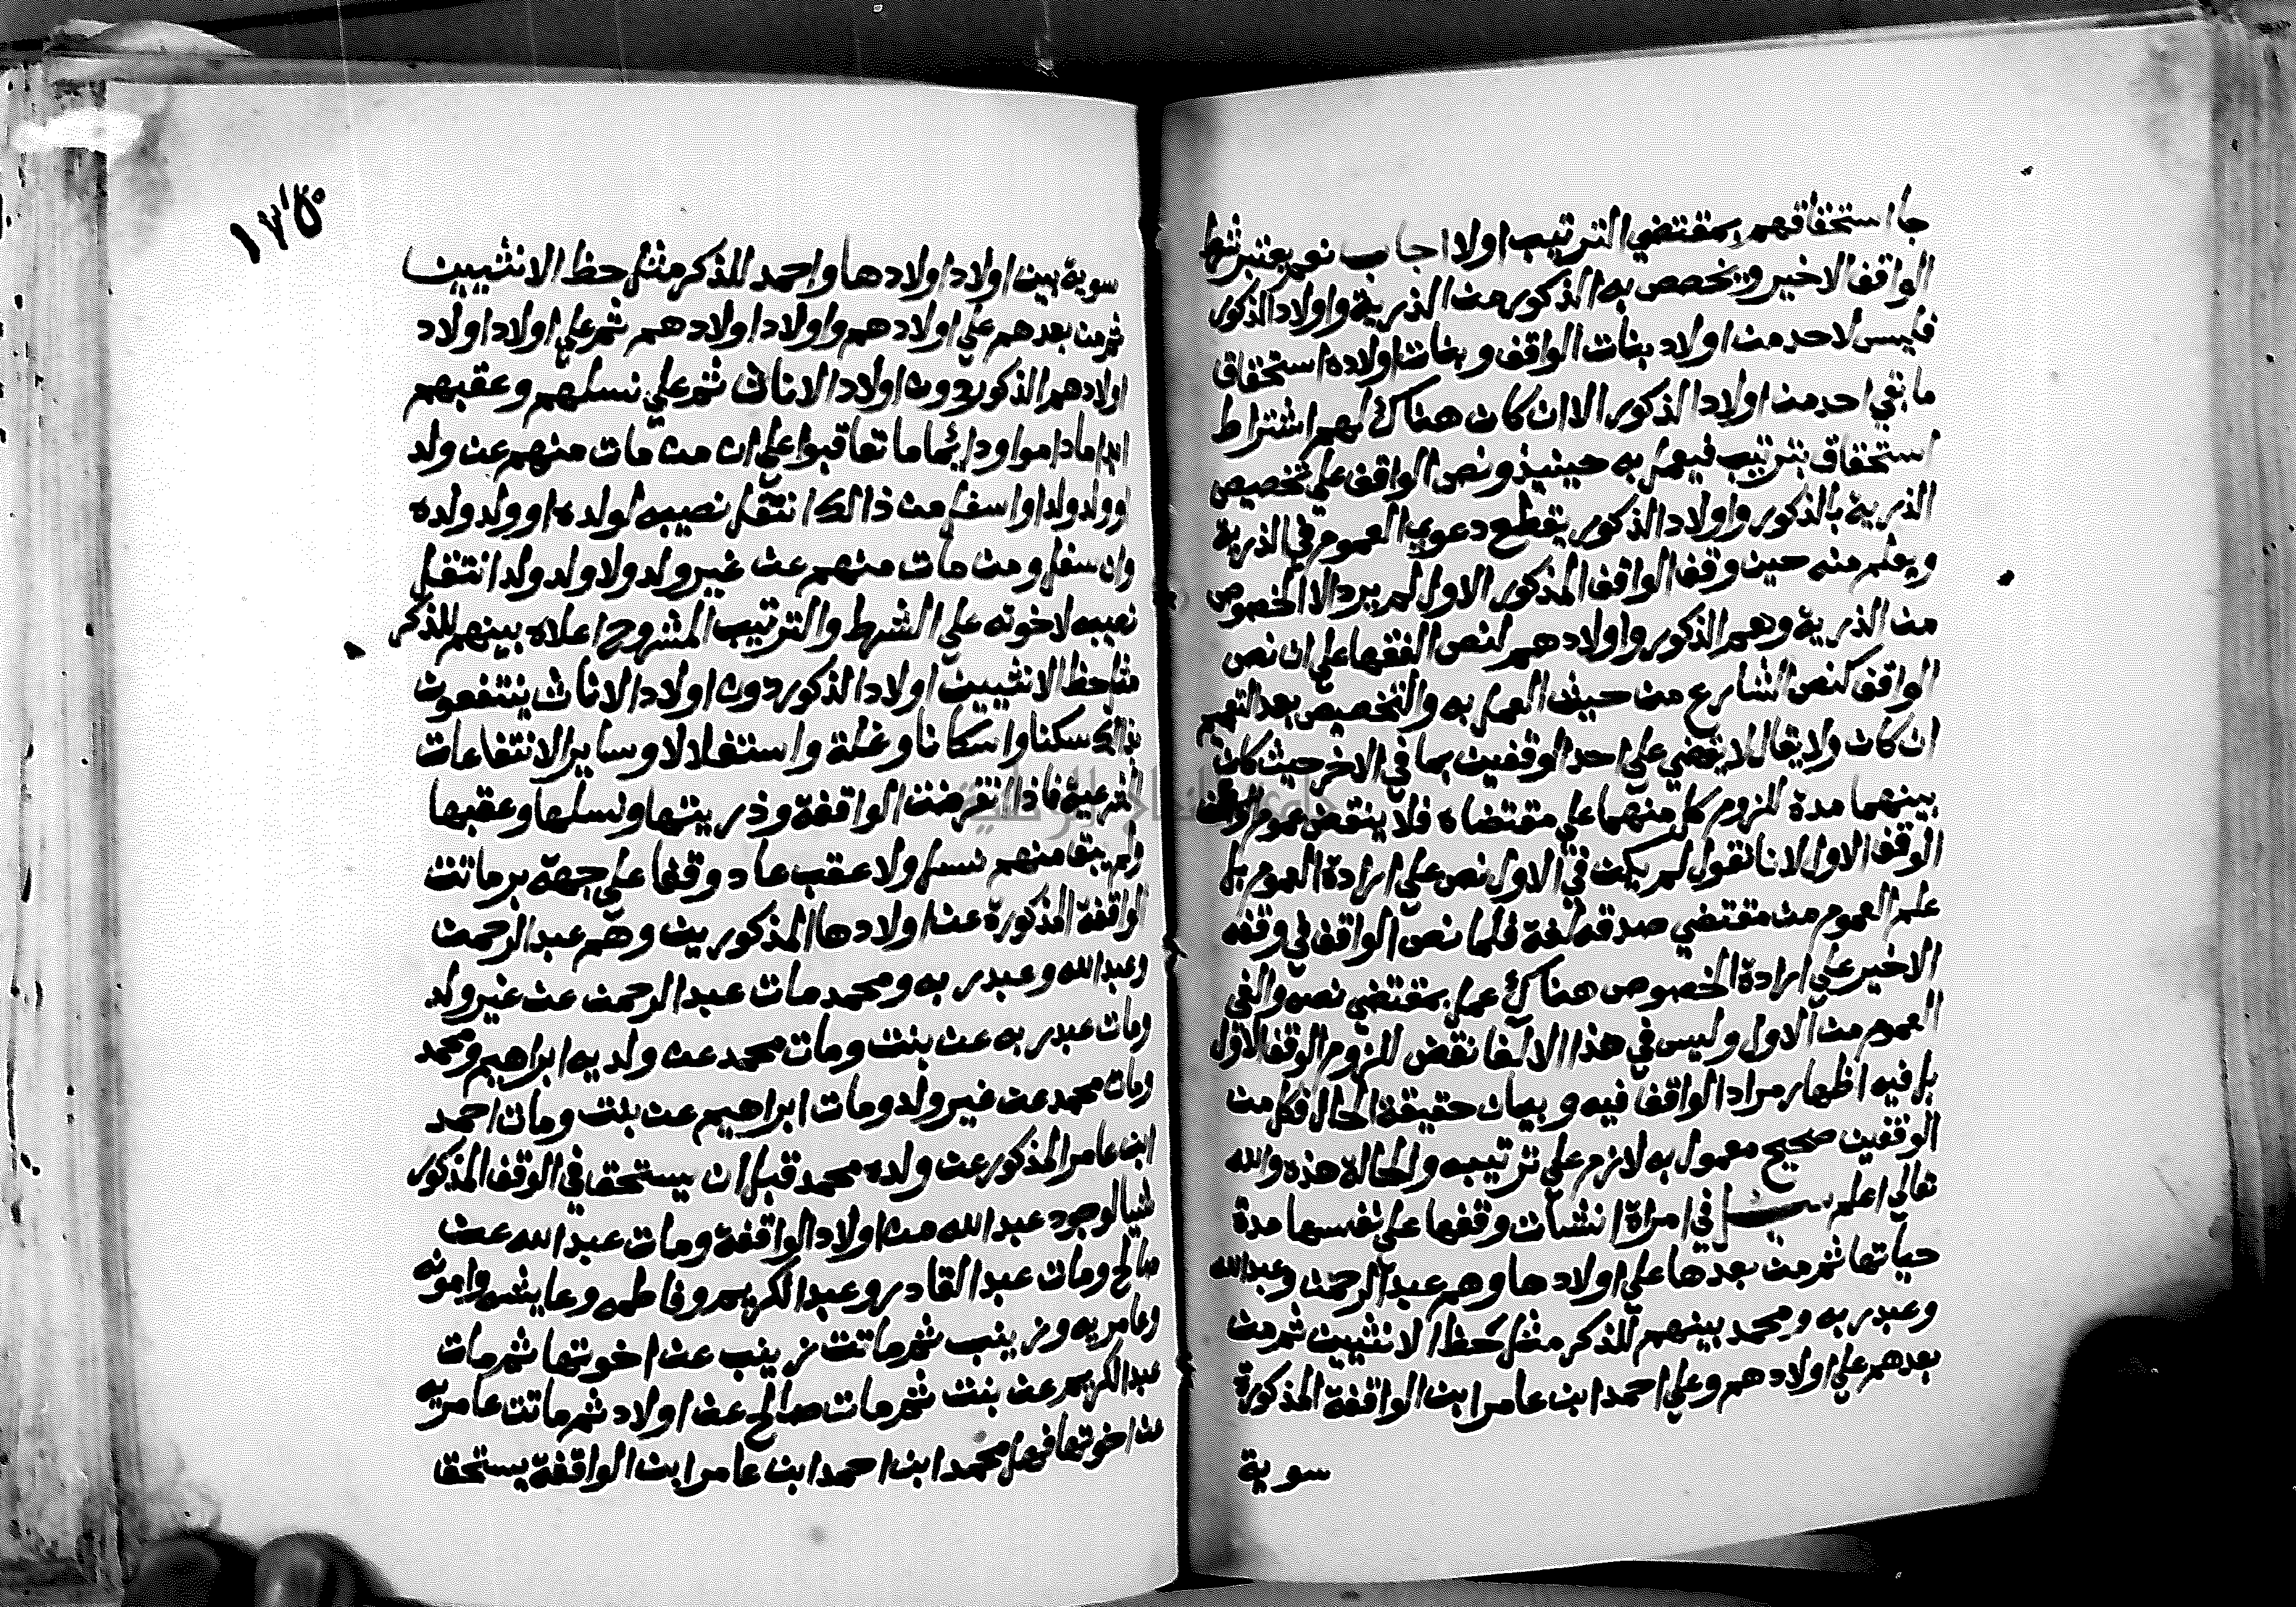 جا استحقاقهم بمقتضي الترتيب اولا اجاب نعم يعتبر شرط
الواقف الاخير ويخصص به الذكور من الذرية واولاد الذكور
فليس لاحد من اولاد بنات الواقف وبنات اولاده استحقاق
ما بقي احد من اولاد الذكور الا ان كان هناك لهم اشتراط
استحقاق بترتيب فيعمل به حينيذ ونص الواقف علي تخصيص
الذرية بالذكور واولاد الذكور يقطع دعوي العموم في الذرية
ويعلم منه حين وقف الواقف المذكور الاول لم يرد الا الخصوص
من الذرية وهم الذكور واولادهم لنص الفقها علي ان نص
الواقف كنص الشارع من حيث العمل به والتخصيص بعد التعميم
ان كان ولا يقال لا يقضي علي احد الوقفين بما في الاخر حيث كان
بينهما مدة للزوم كل منهما علي مقتضاه فلا ينتقض عموم
الوقف الاول لانا نقول لم يكن في الاول نص علي ارادة العموم بل
علم العموم من مقتضي صدقه لغة فلما نص الواقف في وقفه
الاخير علي ارادة الخصوص هناك عمل بمقتضي نصه والغي
العموم من الاول وليس في هذا الالغا نقض للزوم الوقف الاول
بل فيه اظهار مراد الواقف فيه وبيان حقيقة الحال فكل من
الوقفين صحيح معمول به لازم علي ترتيبه والحالة هذه والله
تعالي اعلم سيل في امراة انشات وقفها علي نفسها مدة
حياتها ثم من بعدها علي اولادها وهم عبد الرحمن وعبد الله
وعبد ربه ومحمد بينهم للذكر مثل حظ الانثيين ثم من
بعدهم علي اولادهم وعلي احمد ابن عامر ابن الواقفة المذكورة
سوية
١٧٥
سوية بين اولاد اولادها واحمد للذكر مثل حظ الانثيين
ثم من بعدهم علي اولادهم واولاد اولادهم ثم علي اولاد اولاد
اولادهم الذكور دون اولاد الاناث ثم علي نسلهم وعقبهم
ابدا ما داموا ودايما ما تعاقبوا علي ان من مات منهم عن ولد
او ولد ولد او اسفل من ذالك انتقل نصيبه لولده او ولد ولده
وان سفل ومن مات منهم عن غير ولد ولا ولد ولد انتقل
نصيبه لاخوته علي الشرط والترتيب المشروح اعلاه بينهم للذكر
مثل حظ الانثيين اولاد الذكور دون اولاد الاناث ينتفعون
بذالك سكنا واسكانا وغلة واستغلالا وساير الانتفاعات
الشرعية فاذا انقرضت الواقفة وذريتها ونسلها وعقبها
ولم يبق منهم نسل ولا عقب عاد وقفا علي جهة بر ماتت
الواقفة المذكورة عن اولادها المذكورين وهم عبد الرحمن
وعبد الله وعبد ربه ومحمد مات عبد الرحمن عن غير ولد
ومات عبد ربه عن بنت ومات محمد عن ولديه ابراهيم ومحمد
ومات محمد عن غير ولد ومات ابراهيم عن بنت ومات احمد
ابن عامر المذكور عن ولده محمد قبل ان يستحق في الوقف المذكور
شيا لوجود عبد الله من اولاد الواقفة ومات عبد الله عن
صالح ومات عبد القادر وعبد الكريم وفاطمه وعايشه وامونه
وعامريه وزينب ثم ماتت زينب عن اخوتها ثم مات
عبد الكريم عن بنت ثم مات صالح عن اولاد ثم ماتت عامريه
عن اخوتها فهل محمد ابن احمد ابن عامر ابن الواقفة يستحق